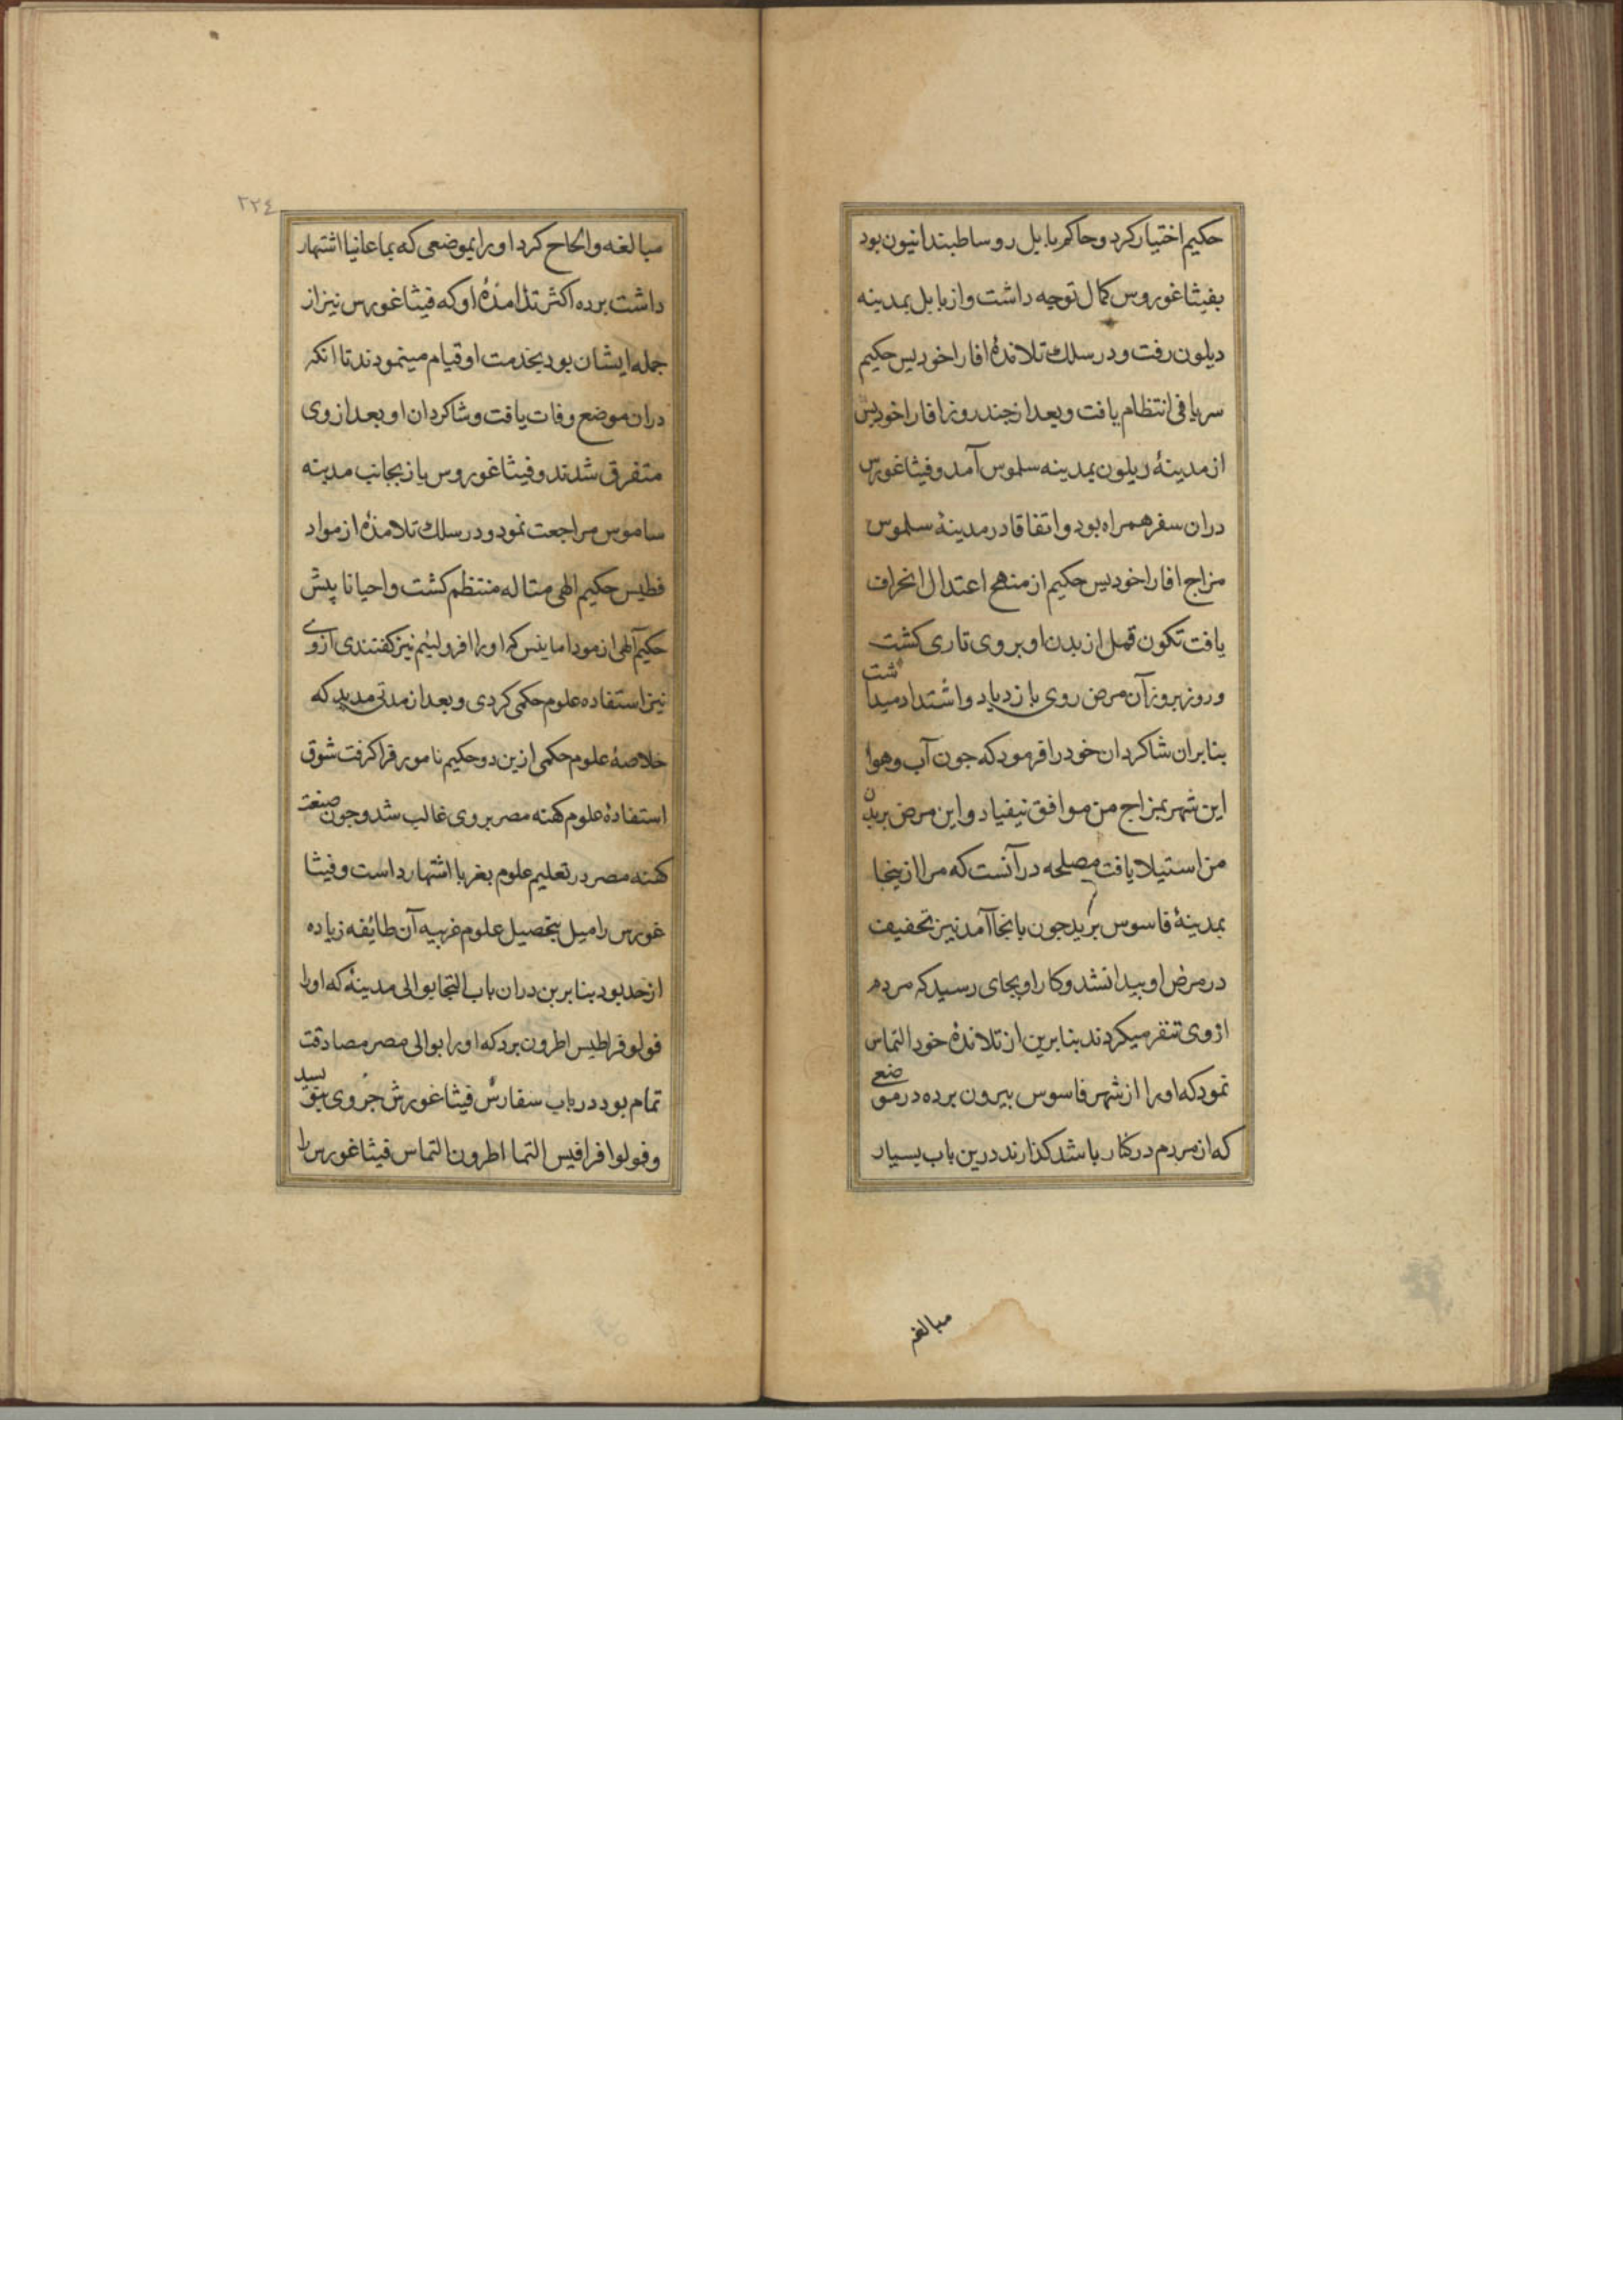 حکیم اختیار کرد و حاکم بابل روساطبندانیون بود
بفیثاغوروس کمال توجه داشت و از بابل بمدینه
دیلون رفت و در سلک تلانده افاراخودیس حکیم
سریافی انتظام یافت و بعد از جند روز افاراخودیس
از مدینۀ دیلون بمدینه سلموس آمد و فیثاغورس
دران سفر همراه بود و اتفاقا در مدینۀ سلموس
مزاج افاراخودیس حکیم از منهج اعتدال انحراف
یافت تکون قمل از بدن او بروی تاری کشت
و روز بروز آن مرض روی بازدیاد و اشتداد میداشت
بنابران شاکردان خود را فرمود که جون آب و هوا
این شهر بمزاج من موافق نیفیاد و این مرض بر بدن
من استیلا یافت مصلحه در آنست که مرا ازینجا
بمدینۀ قاسوس برید جون بانجا آمد نیز تخفیف
در مرض او پیدا نشد و کار او بجای رسید که مردم
ازوی تنفر میکردند بنابرین از تلاندۀ خود التماس
نمود که او را از شهر فاسوس بیرون برده در موضعی
که از مردم در کنار باشد کذارند درین باب بسیار
مبالغه
٢٢٤
مبالغه و الحاح کرد او را بموضعی که بماعانیا اشتهار
داشت برده اکثر تذامذۀ او که فیثاغورس نیز از
جمله ایشان بود بخدمت او قیام مینمودند تا انکه
دران موضع وفات یافت و شاکردان او بعد از وی
متفرق شدند و فیثاغوروس باز بجانب مدینه
ساموس مراجعت نمود و در سلک تلامذۀ ازمواد
فطیس حکیم الهی متاله منتظم کشت و احیانا پیش
حکیم آلهی ازمودامانیس که او را افرولیم نیز کفتندی ازوی
نیز استفاده علوم حکمی کردی و بعد از مدتی مدید که
خلاصۀ علوم حکمی ازین دو حکیم نامور فرا کرفت شوق
استفادۀ علوم کهنه مصر بروی غالب شد و جون صنعت
کهنه مصر در تعلیم علوم بغربا اشتهار داست و فیثا
غورس را میل بتحصیل علوم غریبه آن طائفه زیاده
از حد بود بنابرین دران باب التجا بوالی مدینۀ که او را
فولوفراطیس اطرون برد که او را بوالی مصر مصادقت
تمام بود در باب سفارش فیثاغورش جزوی بنویسد
و فولوافرافیس التما اطرون التماس فیثاغورس را